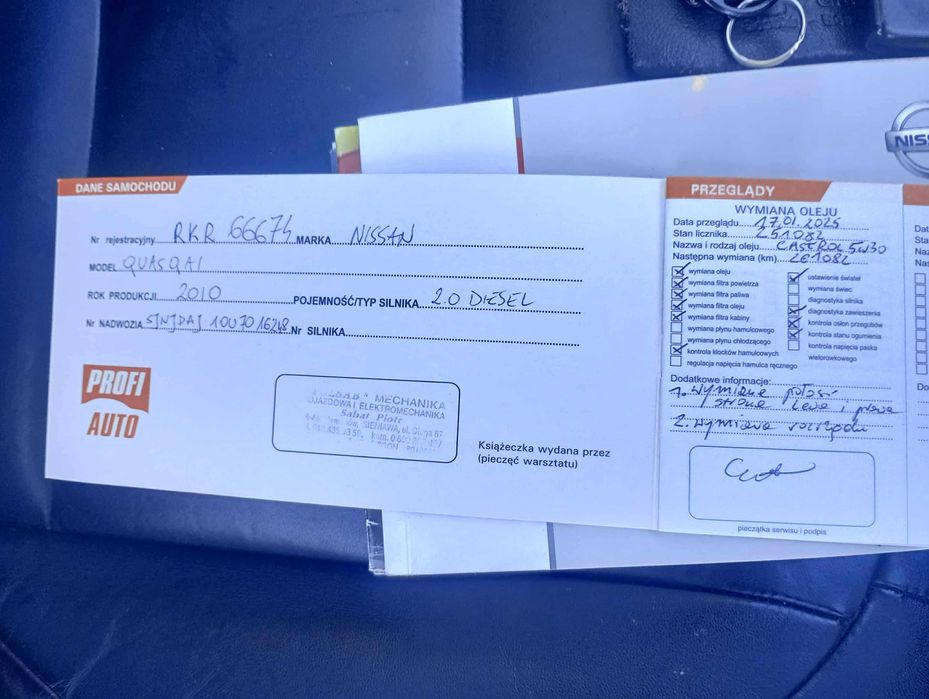 NISS
DANE SAMOCHODU
Nr rejestracyjny RKR 66674 MARKA NISSAN
MODEL QUASQAI
ROK PRODUKCJI 2010 POJEMNOŚĆ/TYP SILNIKA 2.0 DIESEL
Nr NADWOZIA SJNJDAJ10U7016248 Nr SILNIKA
PROFI
AUTO
MECHANIKA
POJAZDOWA I ELEKTROMECHANIKA
Sabat Piotr
SIENIAWA, ul.
Książeczka wydana przez
(pieczęć warsztatu)
PRZEGLĄDY
WYMIANA OLEJU
Data przeglądu 17.01.2025
Stan licznika 251082
Nazwa i rodzaj oleju CASTROL 5W30
Następna wymiana (km) 261082
wymiana oleju
wymiana filtra powietrza
wymiana filtra paliwa
wymiana filtra oleju
wymiana filtra kabiny
wymiana płynu hamulcowego
wymiana płynu chłodzącego
kontrola klocków hamulcowych
regulacja napięcia hamulca ręcznego
ustawienie świateł
wymiana świec
diagnostyka silnika
diagnostyka zawieszenia
kontrola osłon przegubów
kontrola stanu ogumienia
kontrola napięcia paska
wielorowkowego
Dodatkowe informacje:
1. Wymiana półosi
strona lewa i prawa
2. Wymiana rozrządu
pieczątka serwisu i podpis